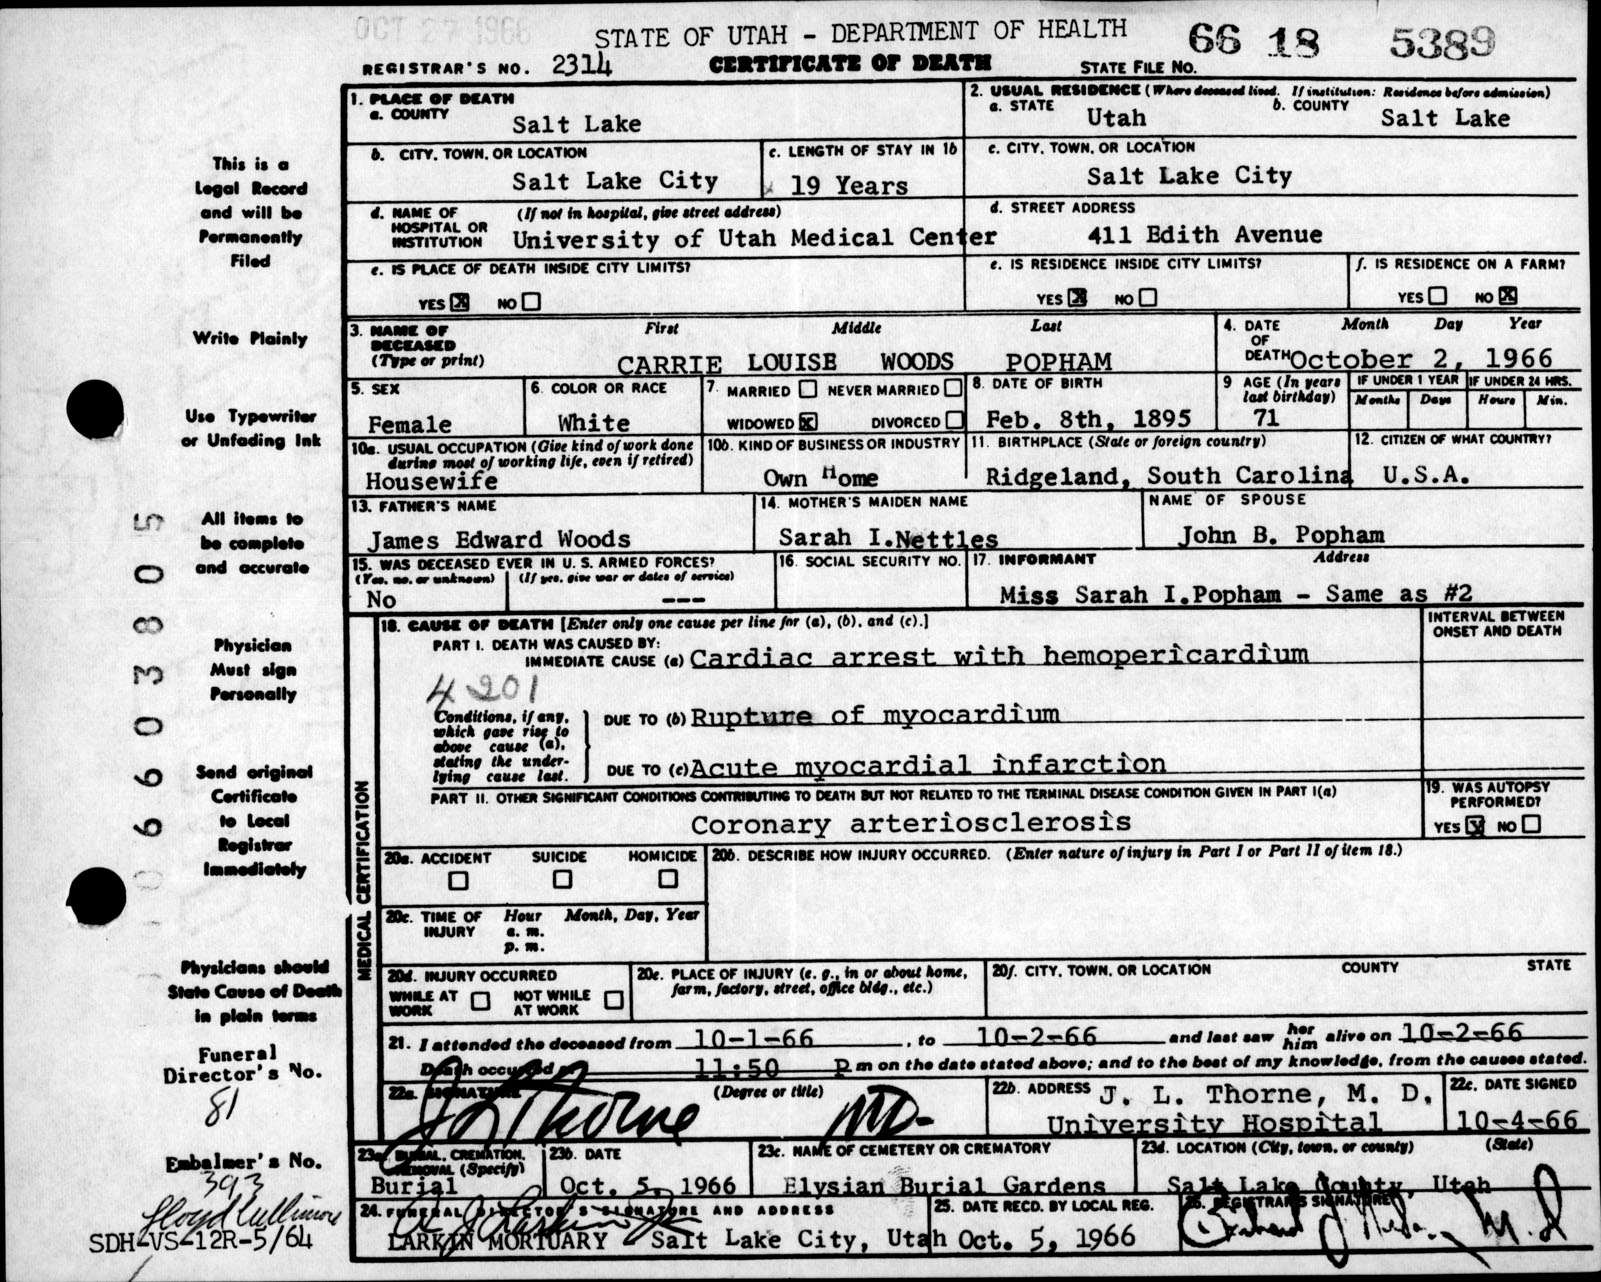 OCT 27 1966
STATE OF UTAH - DEPARTMENT OF HEALTH
66 18 5389
REGISTRAR'S NO. 2314
CERTIFICATE OF DEATH
STATE FILE NO.
1. PLACE OF DEATH
a. COUNTY
Salt Lake
2. USUAL RESIDENCE (Where deceased lived. If institution: Residence before admission)
a. STATE
Utah
b. COUNTY
Salt Lake
b. CITY, TOWN, OR LOCATION
Salt Lake City
c. LENGTH OF STAY IN 1b
19 Years
c. CITY, TOWN, OR LOCATION
Salt Lake City
d. NAME OF HOSPITAL OR INSTITUTION
(If not in hospital, give street address)
University of Utah Medical Center
d. STREET ADDRESS
411 Edith Avenue
e. IS PLACE OF DEATH INSIDE CITY LIMITS?
YES X NO
e. IS RESIDENCE INSIDE CITY LIMITS?
YES X NO
f. IS RESIDENCE ON A FARM?
YES NO X
3. NAME OF DECEASED
(Type or print)
First Middle Last
CARRIE LOUISE WOODS POPHAM
4. DATE OF DEATH
Month Day Year
October 2, 1966
5. SEX
Female
6. COLOR OR RACE
White
7. MARRIED NEVER MARRIED
WIDOWED X DIVORCED
8. DATE OF BIRTH
Feb. 8th, 1895
9 AGE (In years last birthday)
71
IF UNDER 1 YEAR
Months Days
IF UNDER 24 HRS.
Hours Min.
10a. USUAL OCCUPATION (Give kind of work done during most of working life, even if retired)
Housewife
10b. KIND OF BUSINESS OR INDUSTRY
Own Home
11. BIRTHPLACE (State or foreign country)
Ridgeland, South Carolina
12. CITIZEN OF WHAT COUNTRY?
U.S.A.
13. FATHER'S NAME
James Edward Woods
14. MOTHER'S MAIDEN NAME
Sarah I.Nettles
NAME OF SPOUSE
John B. Popham
15. WAS DECEASED EVER IN U. S. ARMED FORCES?
(Yes, no, or unknown) (If yes, give war or dates of service)
No ---
16. SOCIAL SECURITY NO.
17. INFORMANT Address
Miss Sarah I.Popham - Same as #2
MEDICAL CERTIFICATION
18. CAUSE OF DEATH [Enter only one cause per line for (a), (b), and (c).]
INTERVAL BETWEEN ONSET AND DEATH
PART I. DEATH WAS CAUSED BY:
IMMEDIATE CAUSE (a) Cardiac arrest with hemopericardium
4201
Conditions, if any, which gave rise to above cause (a), stating the underlying cause last.
DUE TO (b) Rupture of myocardium
DUE TO (c) Acute myocardial infarction
PART II. OTHER SIGNIFICANT CONDITIONS CONTRIBUTING TO DEATH BUT NOT RELATED TO THE TERMINAL DISEASE CONDITION GIVEN IN PART I(a)
Coronary arteriosclerosis
19. WAS AUTOPSY PERFORMED?
YES X NO
20a. ACCIDENT SUICIDE HOMICIDE
20b. DESCRIBE HOW INJURY OCCURRED. (Enter nature of injury in Part I or Part II of item 18.)
20c. TIME OF INJURY
Hour Month, Day, Year
a. m.
p. m.
20d. INJURY OCCURRED
WHILE AT WORK NOT WHILE AT WORK
20e. PLACE OF INJURY (e. g., in or about home, farm, factory, street, office bldg., etc.)
20f. CITY, TOWN, OR LOCATION COUNTY STATE
21. I attended the deceased from 10-1-66, to 10-2-66 and last saw her him alive on 10-2-66
Death occurred at 11:50 P m on the date stated above; and to the best of my knowledge, from the causes stated.
22a. SIGNATURE
J L Thorne
(Degree or title)
MD.
22b. ADDRESS J. L. Thorne, M. D.
University Hospital
22c. DATE SIGNED
10-4-66
23a. BURIAL, CREMATION, REMOVAL (Specify)
Burial
23b. DATE
Oct. 5, 1966
23c. NAME OF CEMETERY OR CREMATORY
Elysian Burial Gardens
23d. LOCATION (City, town, or county) (State)
Salt Lake County, Utah
24. FUNERAL DIRECTOR'S SIGNATURE AND ADDRESS
LARKIN MORTUARY Salt Lake City, Utah
25. DATE RECD. BY LOCAL REG.
Oct. 5, 1966
26. REGISTRAR'S SIGNATURE
M.D
This is a
Legal Record
and will be
Permanently
Filed
Write Plainly
Use Typewriter
or Unfading Ink
All items to
be complete
and accurate
Physician
Must sign
Personally
Send original
Certificate
to Local
Registrar
Immediately
Physicians should
State Cause of Death
in plain terms
Funeral
Director's No.
81
Embalmer's No.
393
Lloyd Cullimore
SDH-VS-12R-5/64
0660 3805